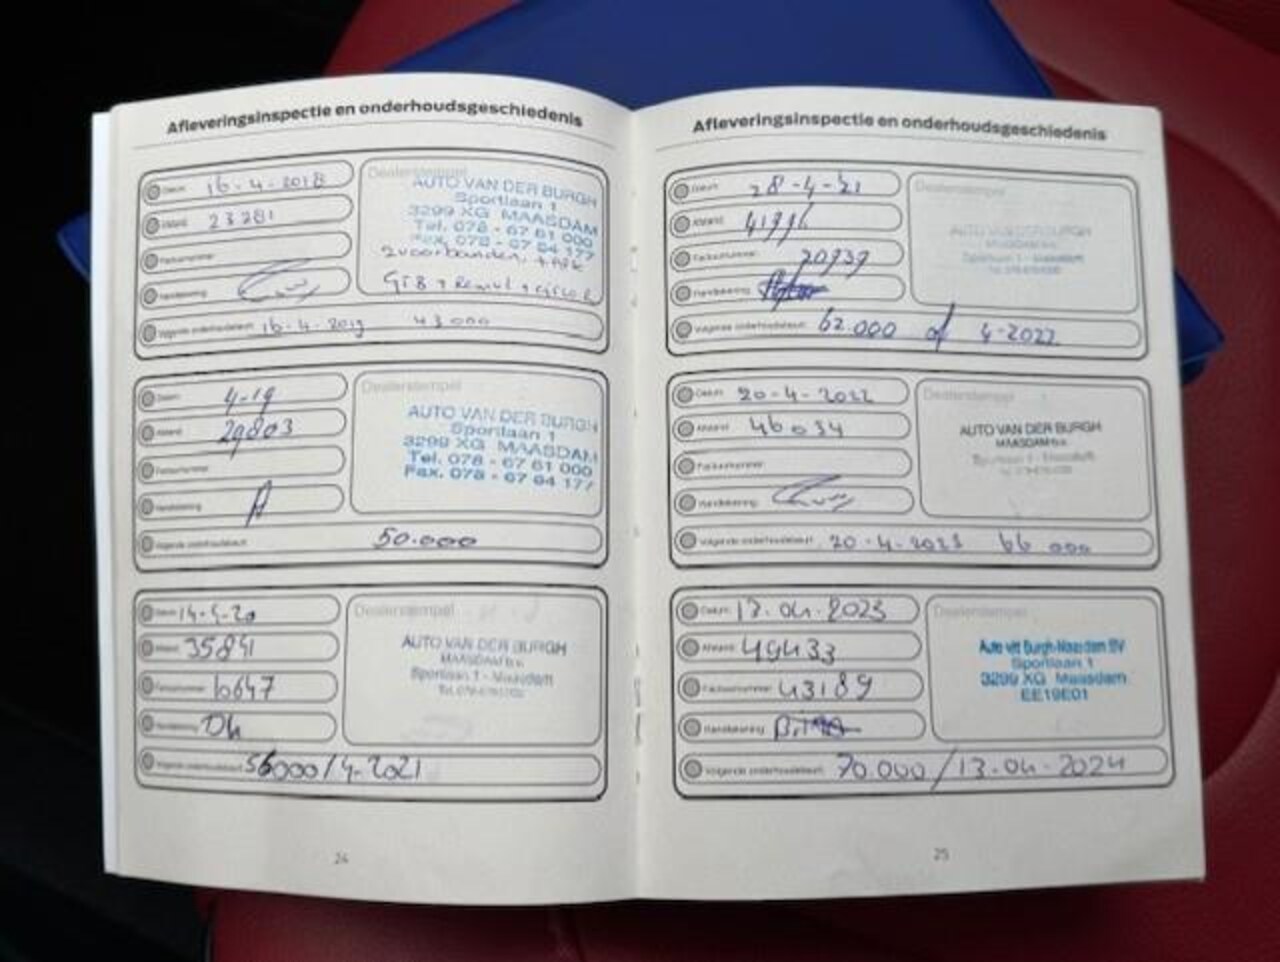 Afleveringsinspectie en onderhoudsgeschiedenis
Datum 16-4-2018
Afstand 23281
Factuurnummer
Handtekening
Volgende onderhoudsbeurt 16-4-2019 43000
Dealerstempel
AUTO VAN DER BURGH
Sportlaan 1
3299 XG MAASDAM
Tel. 078 - 67 61 000
Fax. 078 - 67 64 177
2 voorbanden + APK
Datum 4-19
Afstand 29803
Factuurnummer
Handtekening
Volgende onderhoudsbeurt 50.000
Dealerstempel
AUTO VAN DER BURGH
Sportlaan 1
3299 XG MAASDAM
Tel. 078 - 67 61 000
Fax. 078 - 67 64 177
Datum 14-5-20
Afstand 35841
Factuurnummer 10647
Handtekening
Volgende onderhoudsbeurt 56000/4-2021
Dealerstempel
AUTO VAN DER BURGH
MAASDAM b.v.
Sportlaan 1 - Maasdam
24
Afleveringsinspectie en onderhoudsgeschiedenis
Datum 28-4-21
Afstand
Factuurnummer 20939
Handtekening
Volgende onderhoudsbeurt 62.000 of 4-2022
Dealerstempel
AUTO VAN DER BURGH
MAASDAM b.v.
Sportlaan 1 - Maasdam
Datum 20-4-2022
Afstand 46034
Factuurnummer
Handtekening
Volgende onderhoudsbeurt 20-4-2023 66000
Dealerstempel
AUTO VAN DER BURGH
MAASDAM b.v.
Sportlaan 1 - Maasdam
Datum 13.04.2023
Afstand 49433
Factuurnummer 43189
Handtekening
Volgende onderhoudsbeurt 70.000/13.04.2024
Dealerstempel
Auto vd Burgh-Maasdam BV
Sportlaan 1
3299 XG Maasdam
EE19E01
25